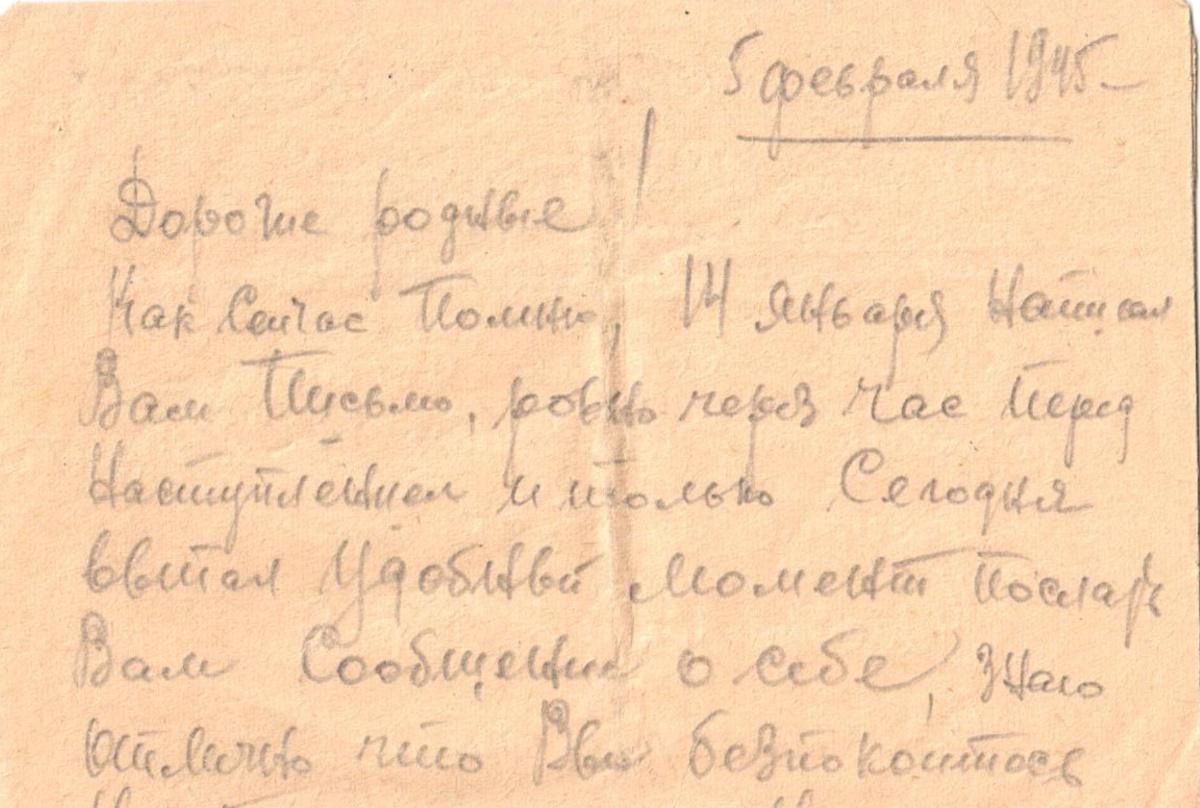 5 февраля 1945
Дорогие родные!
Как Сейчас Помню, 14 января Написал
Вам Письмо, ровно через час Перед
Наступлением и только Сегодня
выпал Удобный Момент Послать
Вам Сообщение о себе, Знаю
отлично что Вы безпокоитось